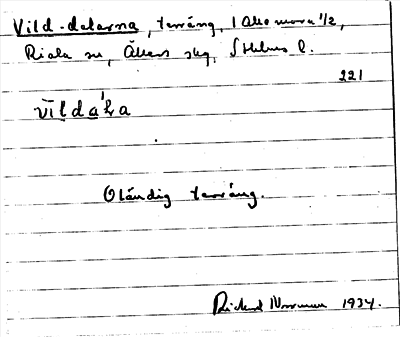 Vild-dalarna, terräng, 1 Allemora 1/2,
Riala sn, Åkers skg, Sthlms l.
221
vildaɫa
Oländig terräng.
Rickard 1934.